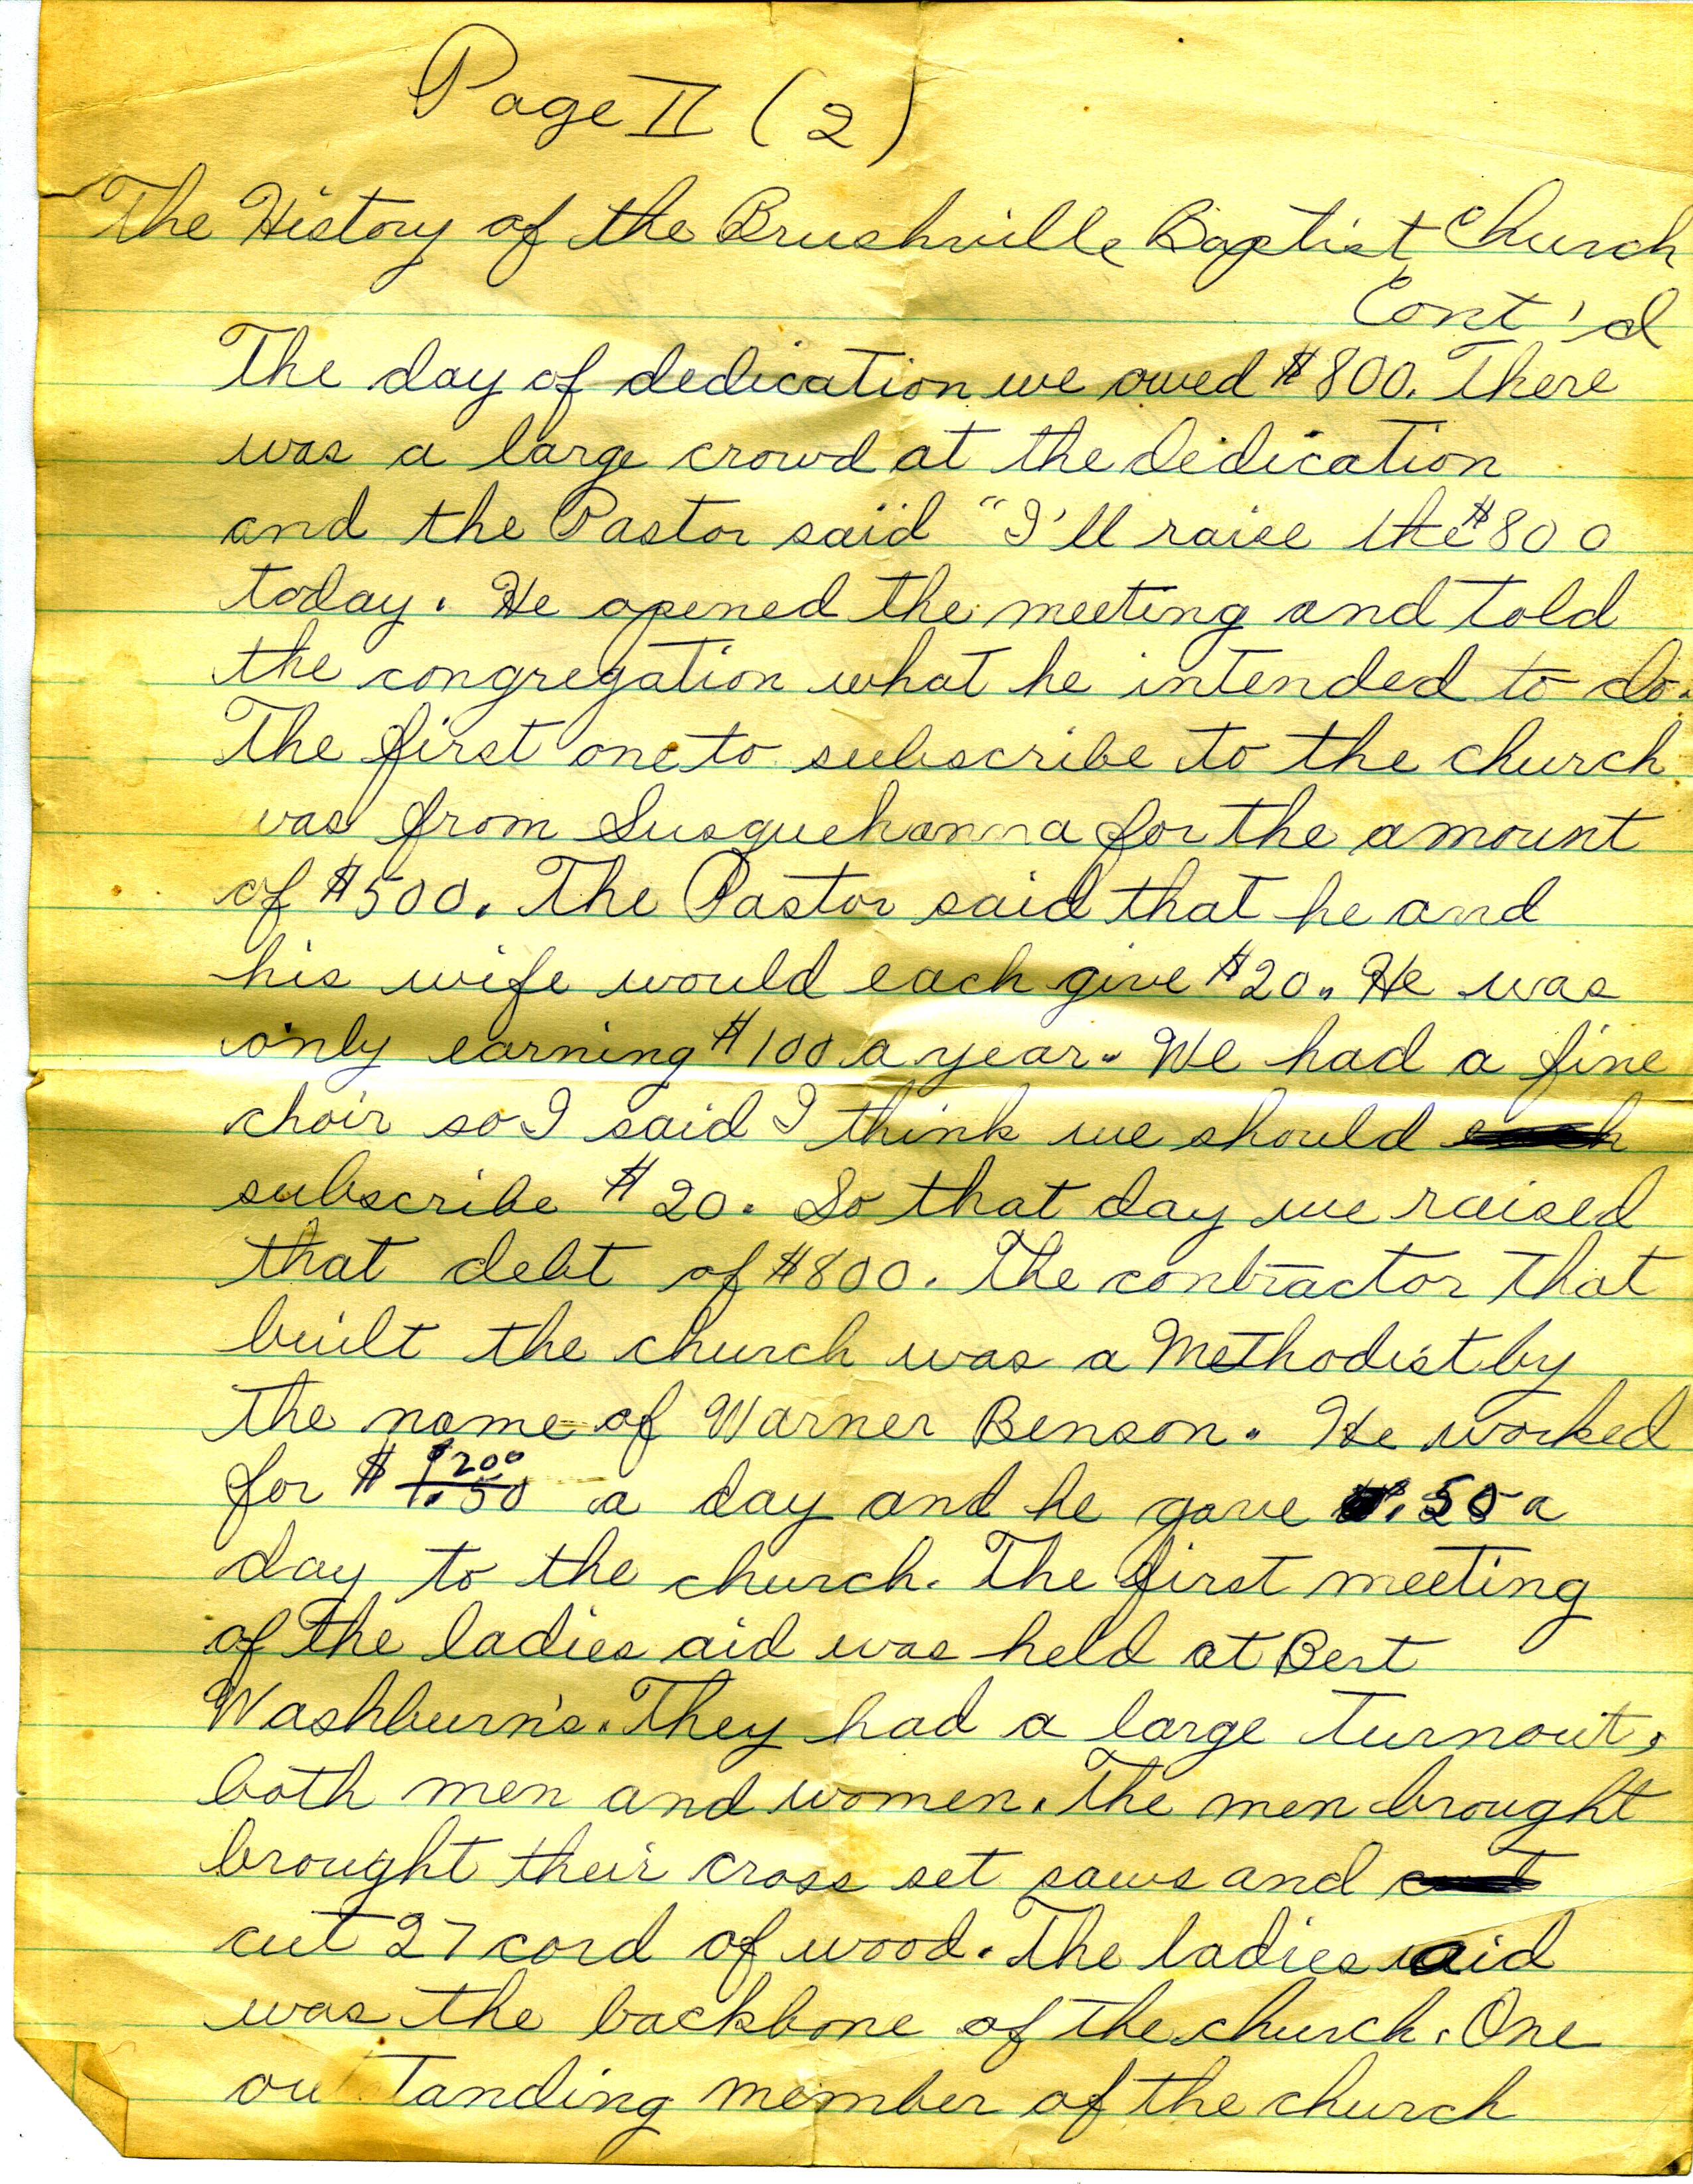 Page II (2)
The History of the Brushville Baptist Church
Cont'd
The day of dedication we owed $800. There
was a large crowd at the dedication
and the Pastor said "I'll raise the $800
today. He opened the meeting and told
the congregation what he intended to do.
The first one to subscribe to the church
was from Susquehanna for the amount
of $500. The Pastor said that he and
his wife would each give $20. He was
only earning $100 a year. We had a fine
choir so I said I think we should each
subscribe $20. So that day we raised
that debt of $800. The contractor that
built the church was a Methodist by
the name of Warner Benson. He worked
$200
for $ 1.50 a day and he gave .50 a
day to the church. The first meeting
of the ladies aid was held at Bert
Washburn's. They had a large turnout,
both men and women. The men brought
brought their cross set saws and cut
cut 27 cord of wood. The ladies aid
was the backbone of the church. One
ou tanding member of the church